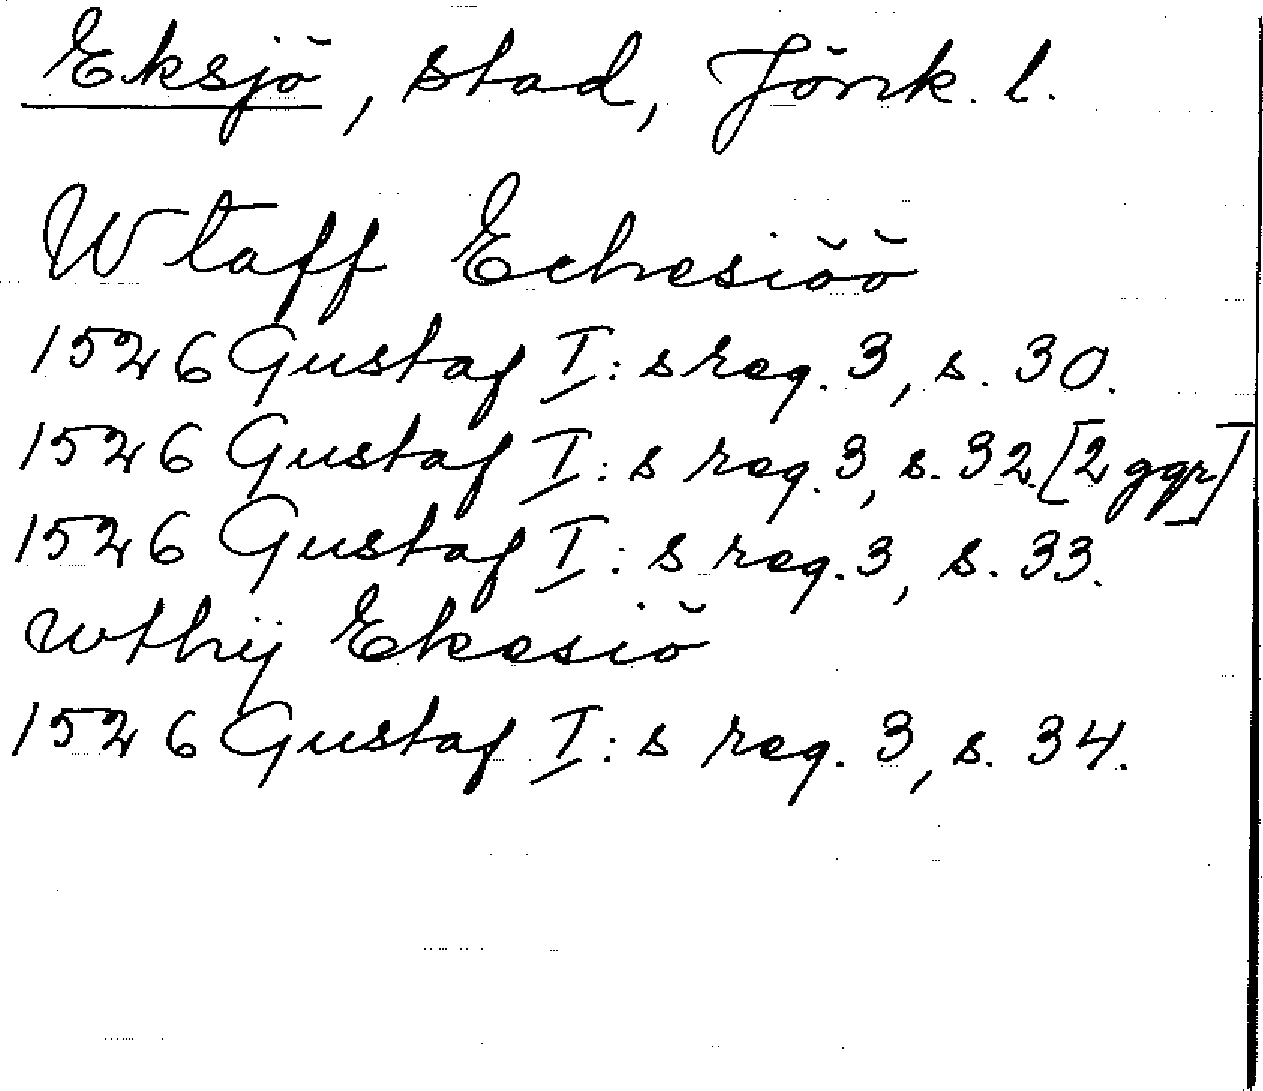 Eksjö, stad, Jönk. l.
Wtaff Echesiöö
1526 Gustaf I:s reg. 3, s. 30.
1526 Gustaf I:s reg. 3, s. 32. [2 ggr]
1526 Gustaf I:s reg. 3, s. 33.
wthij Ekesiö
1526 Gustaf I:s reg. 3, s. 34.